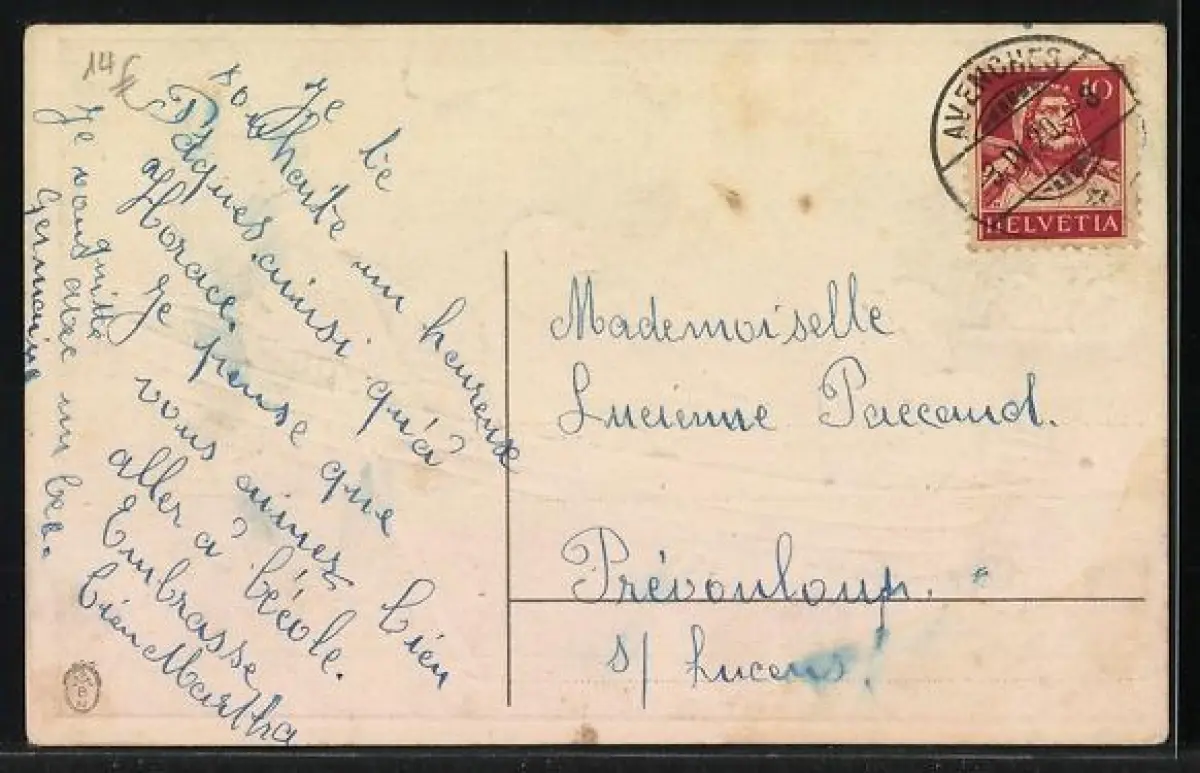 14
Je te
souhaite un heureux
Pâques, ainsi qu'à
Horace.
Je pense que
vous aimez bien
aller à l'école.
Embrasse
bien Martha
Je vous quitte
avec un bec.
Germaine
AVENCHES
IV 20
8
10
HELVETIA
Mademoiselle
Lucienne Paccaud.
Prévonloup.
s/ Lucens!